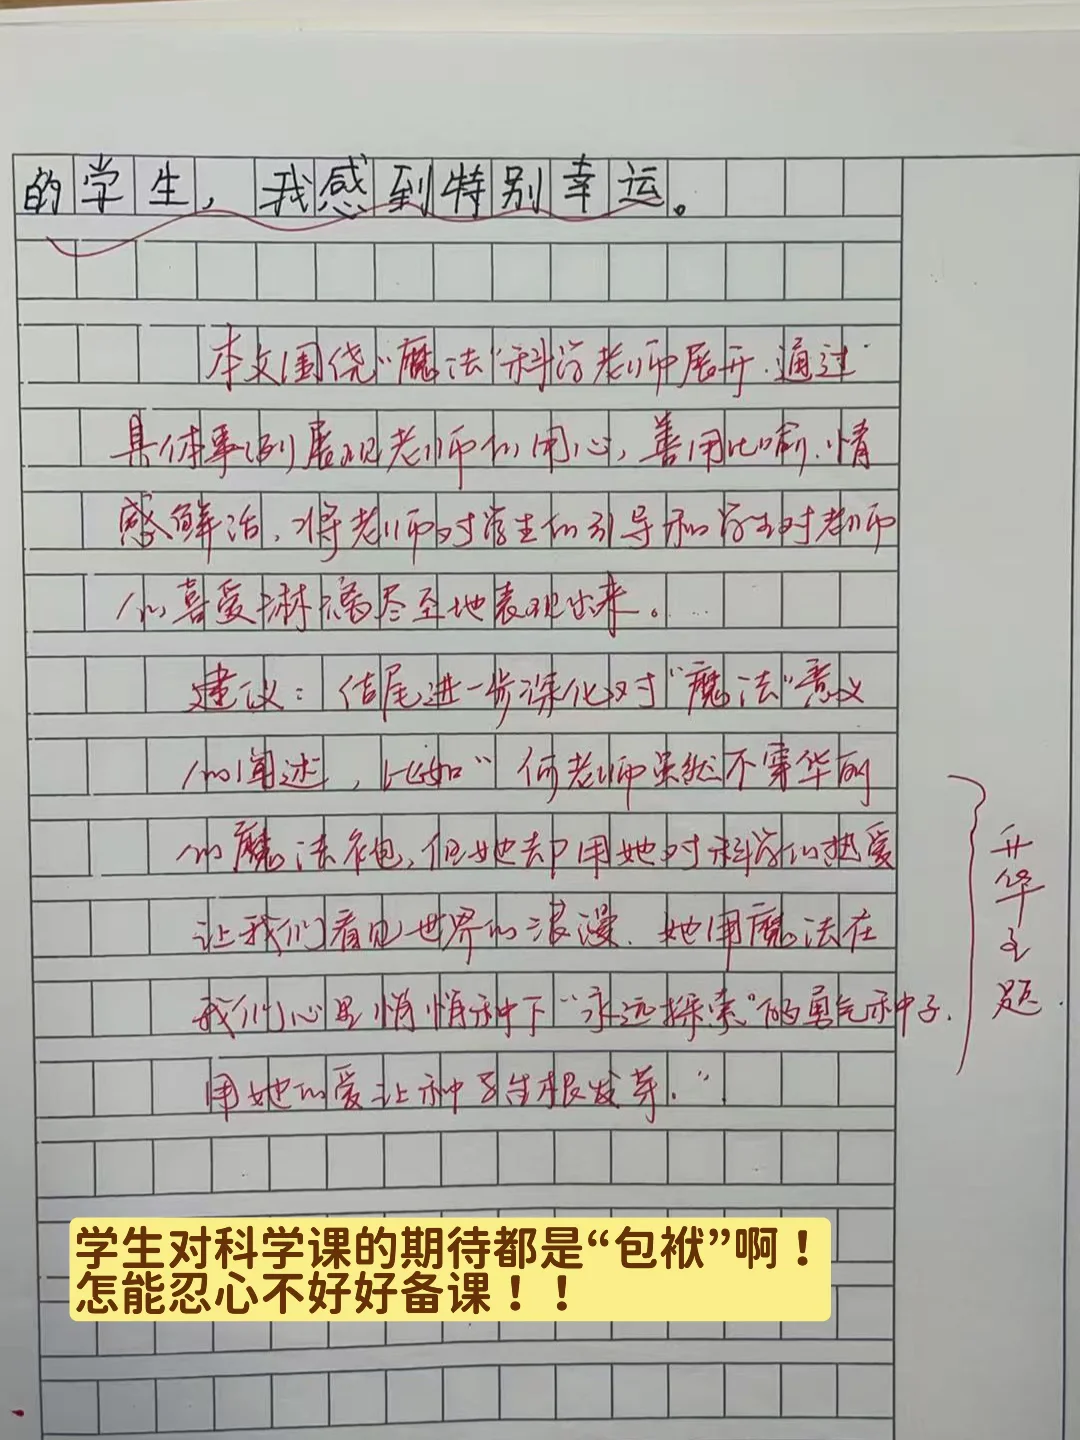 的学生，我感到特别幸运。
本文围绕“魔法”科学老师展开.通过
具体事例展现老师的用心，善用比喻.情
感鲜活，将老师对学生的引导和学生对老师
的喜爱淋漓尽至地表现出来。
建议：结尾进一步深化对“魔法”意义
的阐述，比如“何老师虽然不穿华丽
的魔法袍，但她却用她对科学的热爱
让我们看见世界的浪漫.她用魔法在
我们心里悄悄种下“永远探索”的勇气种子.
用她的爱让种子生根发芽.”
升华主题.
学生对科学课的期待都是“包袱”啊！
怎能忍心不好好备课！！